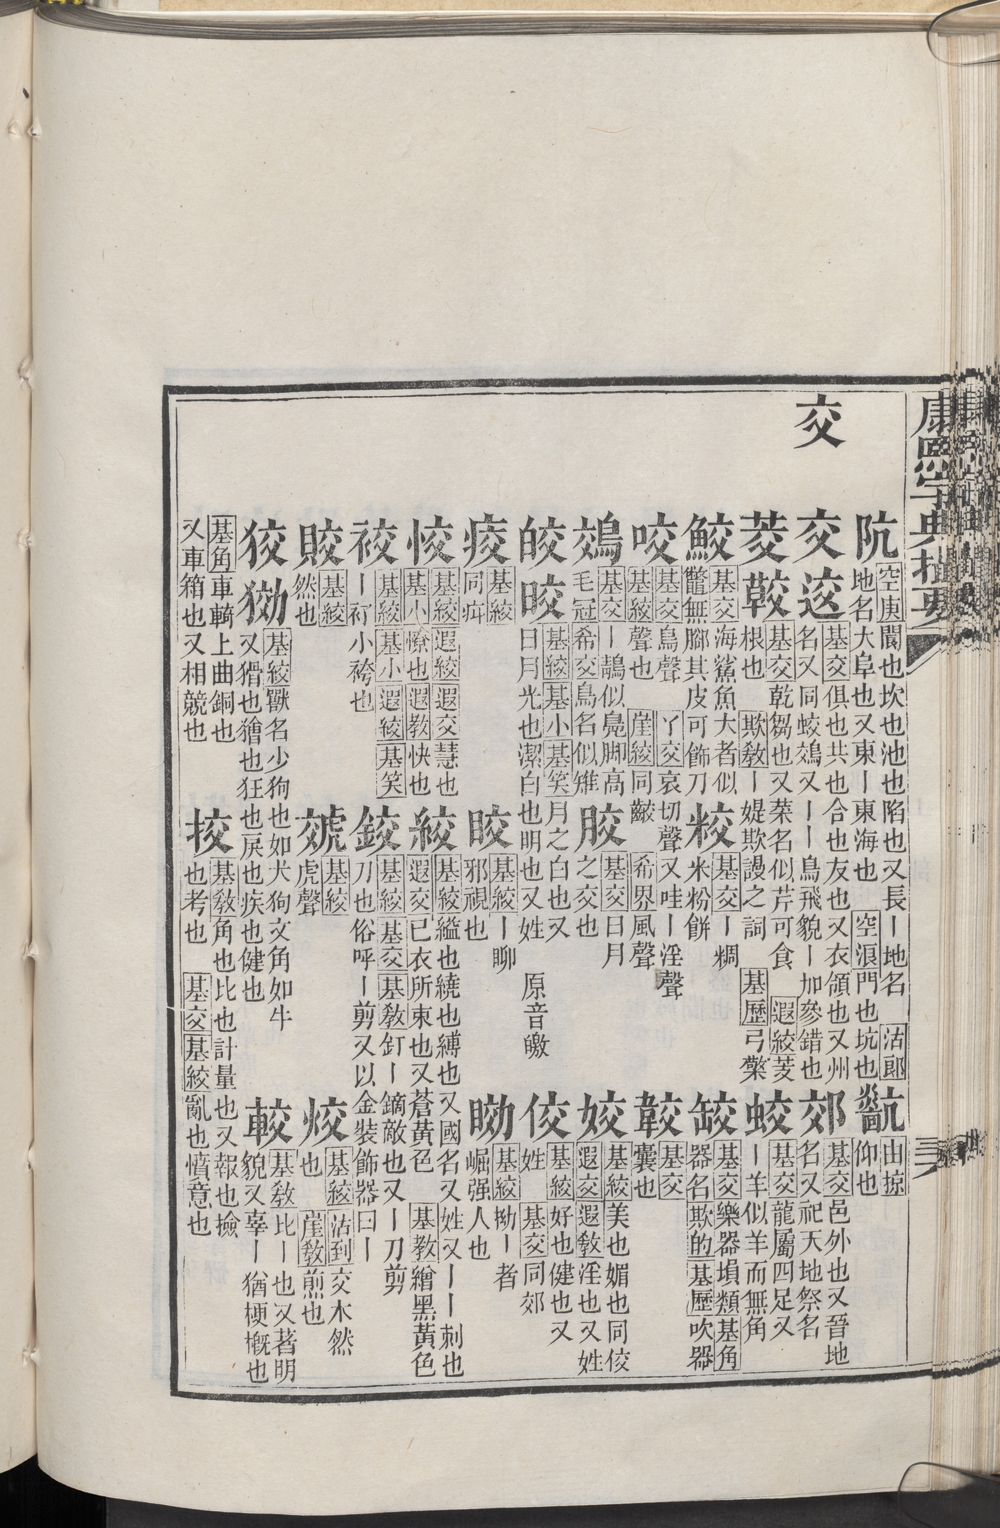 康熙字典撮要
交
阬 空庚閬也坎也池也陷也又長丨地名 地名大阜也又東丨東海也 空浪門也坑也 沽郎 䶳 由掠 仰也
交 䢒 基交俱也共也合也友也又衣領也又州名又同蛟鵁又丨丨鳥飛貌丨加參錯也 郊 基交邑外也又晉地名又祀天地祭名
茭 䩊 基交乾芻也又菜名似芹可食 遐絞茭根也 欺敎丨媞欺謾之詞 基歷弓檠 蛟 基交龍屬四足又丨羊似羊而無角
鮫 基交海鯊魚大者似鼈無腳其皮可飾刀 粀 基交丨粡米粉餅 䍊 基交樂器塤類基角器名欺的基歷吹器
咬 基交鳥聲 丫交哀切聲又哇丨淫聲 基絞聲也 崖絞同齩 希界風聲 䪒 基交囊也
鵁 基交丨鶄似鳧脚高毛冠希交鳥名似雉 胶 基交日月之交也 姣 基絞美也媚也同佼 遐交遐敎淫也又姓
皎 晈 基絞基小基笑月之白也又日月光也潔白也明也又姓 原音皦 佼 基絞好也健也又姓 基交同郊
痎 基絞同㽱 䀊 基絞丨聊邪視也 䁱 基絞拗丨者崛强人也
恔 基絞遐絞遐交慧也 基小憭也遐敎快也 絞 基絞縊也繞也縛也又國名又姓又丨丨刺也 遐交已衣所束也又蒼黃色 基敎繒黑黃色
䘨 基絞基小遐絞基笑丨䘥小袴也 鉸 基絞基交基敎釘丨鏑敵也又丨刀剪刀也俗呼丨剪又以金裝飾器曰丨
賋 基絞然也 虠 基絞虎聲 烄 基絞沽到交木然也 崖敎煎也
狡 㺒 基絞獸名少狗也如犬狗文角如牛又猾也獪也狂也戾也疾也健也 較 基敎比丨也又著明貌又辜丨猶梗槪也
基角車輢上曲銅也又車箱也又相競也 挍 基敎角也比也計量也又報也撿也考也 基交基絞亂也憤意也